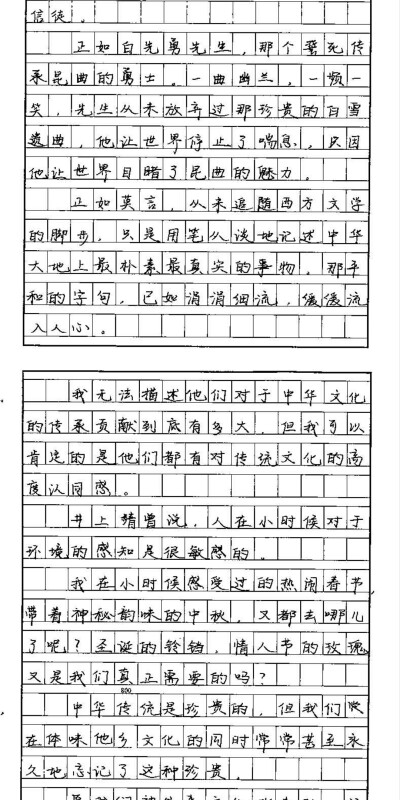 信徒。
正如白先勇先生，那个誓死传
承昆曲的勇士。一曲幽兰，一颦一
笑，先生从未放弃过那珍贵的白雪
遗曲，他让世界停止了喘息，只因
他让世界目睹了昆曲的魅力。
正如莫言，从未追随西方文学
的脚步，只是用笔从谈地记述中华
大地上最朴素最真实的事物，那平
和的字句，已如涓涓细流，缓缓流
入人心。
我无法描述他们对于中华文化
的传承贡献到底有多大，但我可以
肯定的是他们都有对传统文化的高
度认同感。
井上靖曾说，人在小时候对于
环境的感知是很敏感的。
我在小时候感受过的热闹春节，
带着神秘韵味的中秋，又都去哪儿
了呢？圣诞的铃铛，情人节的玫瑰
又是我们真正需要的吗？
800
中华传统是珍贵的，但我们
在体味他乡文化的同时常常甚至永
久地忘记了这种珍贵。